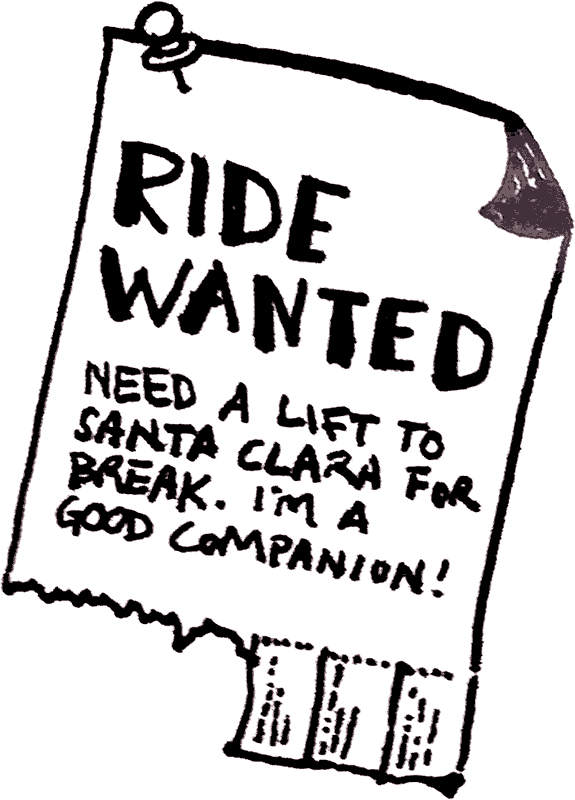 RIDE
WANTED
NEED A LIFT TO
SANTA CLARA FOR
BREAK. I'M A
GOOD COMPANION!